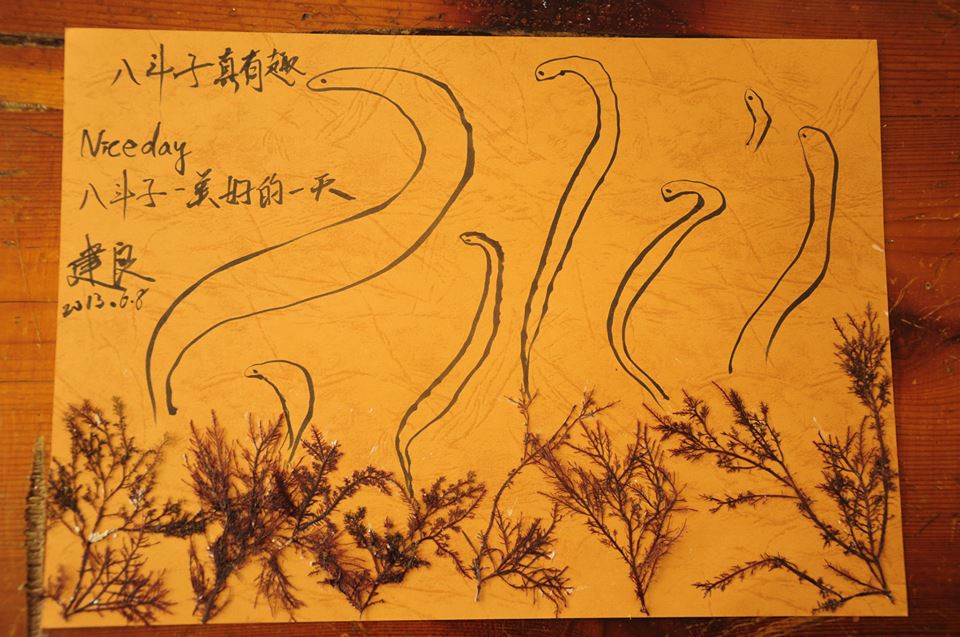 八斗子真有趣
Niceday
八斗子-美好的一天
建良
2013.6.8